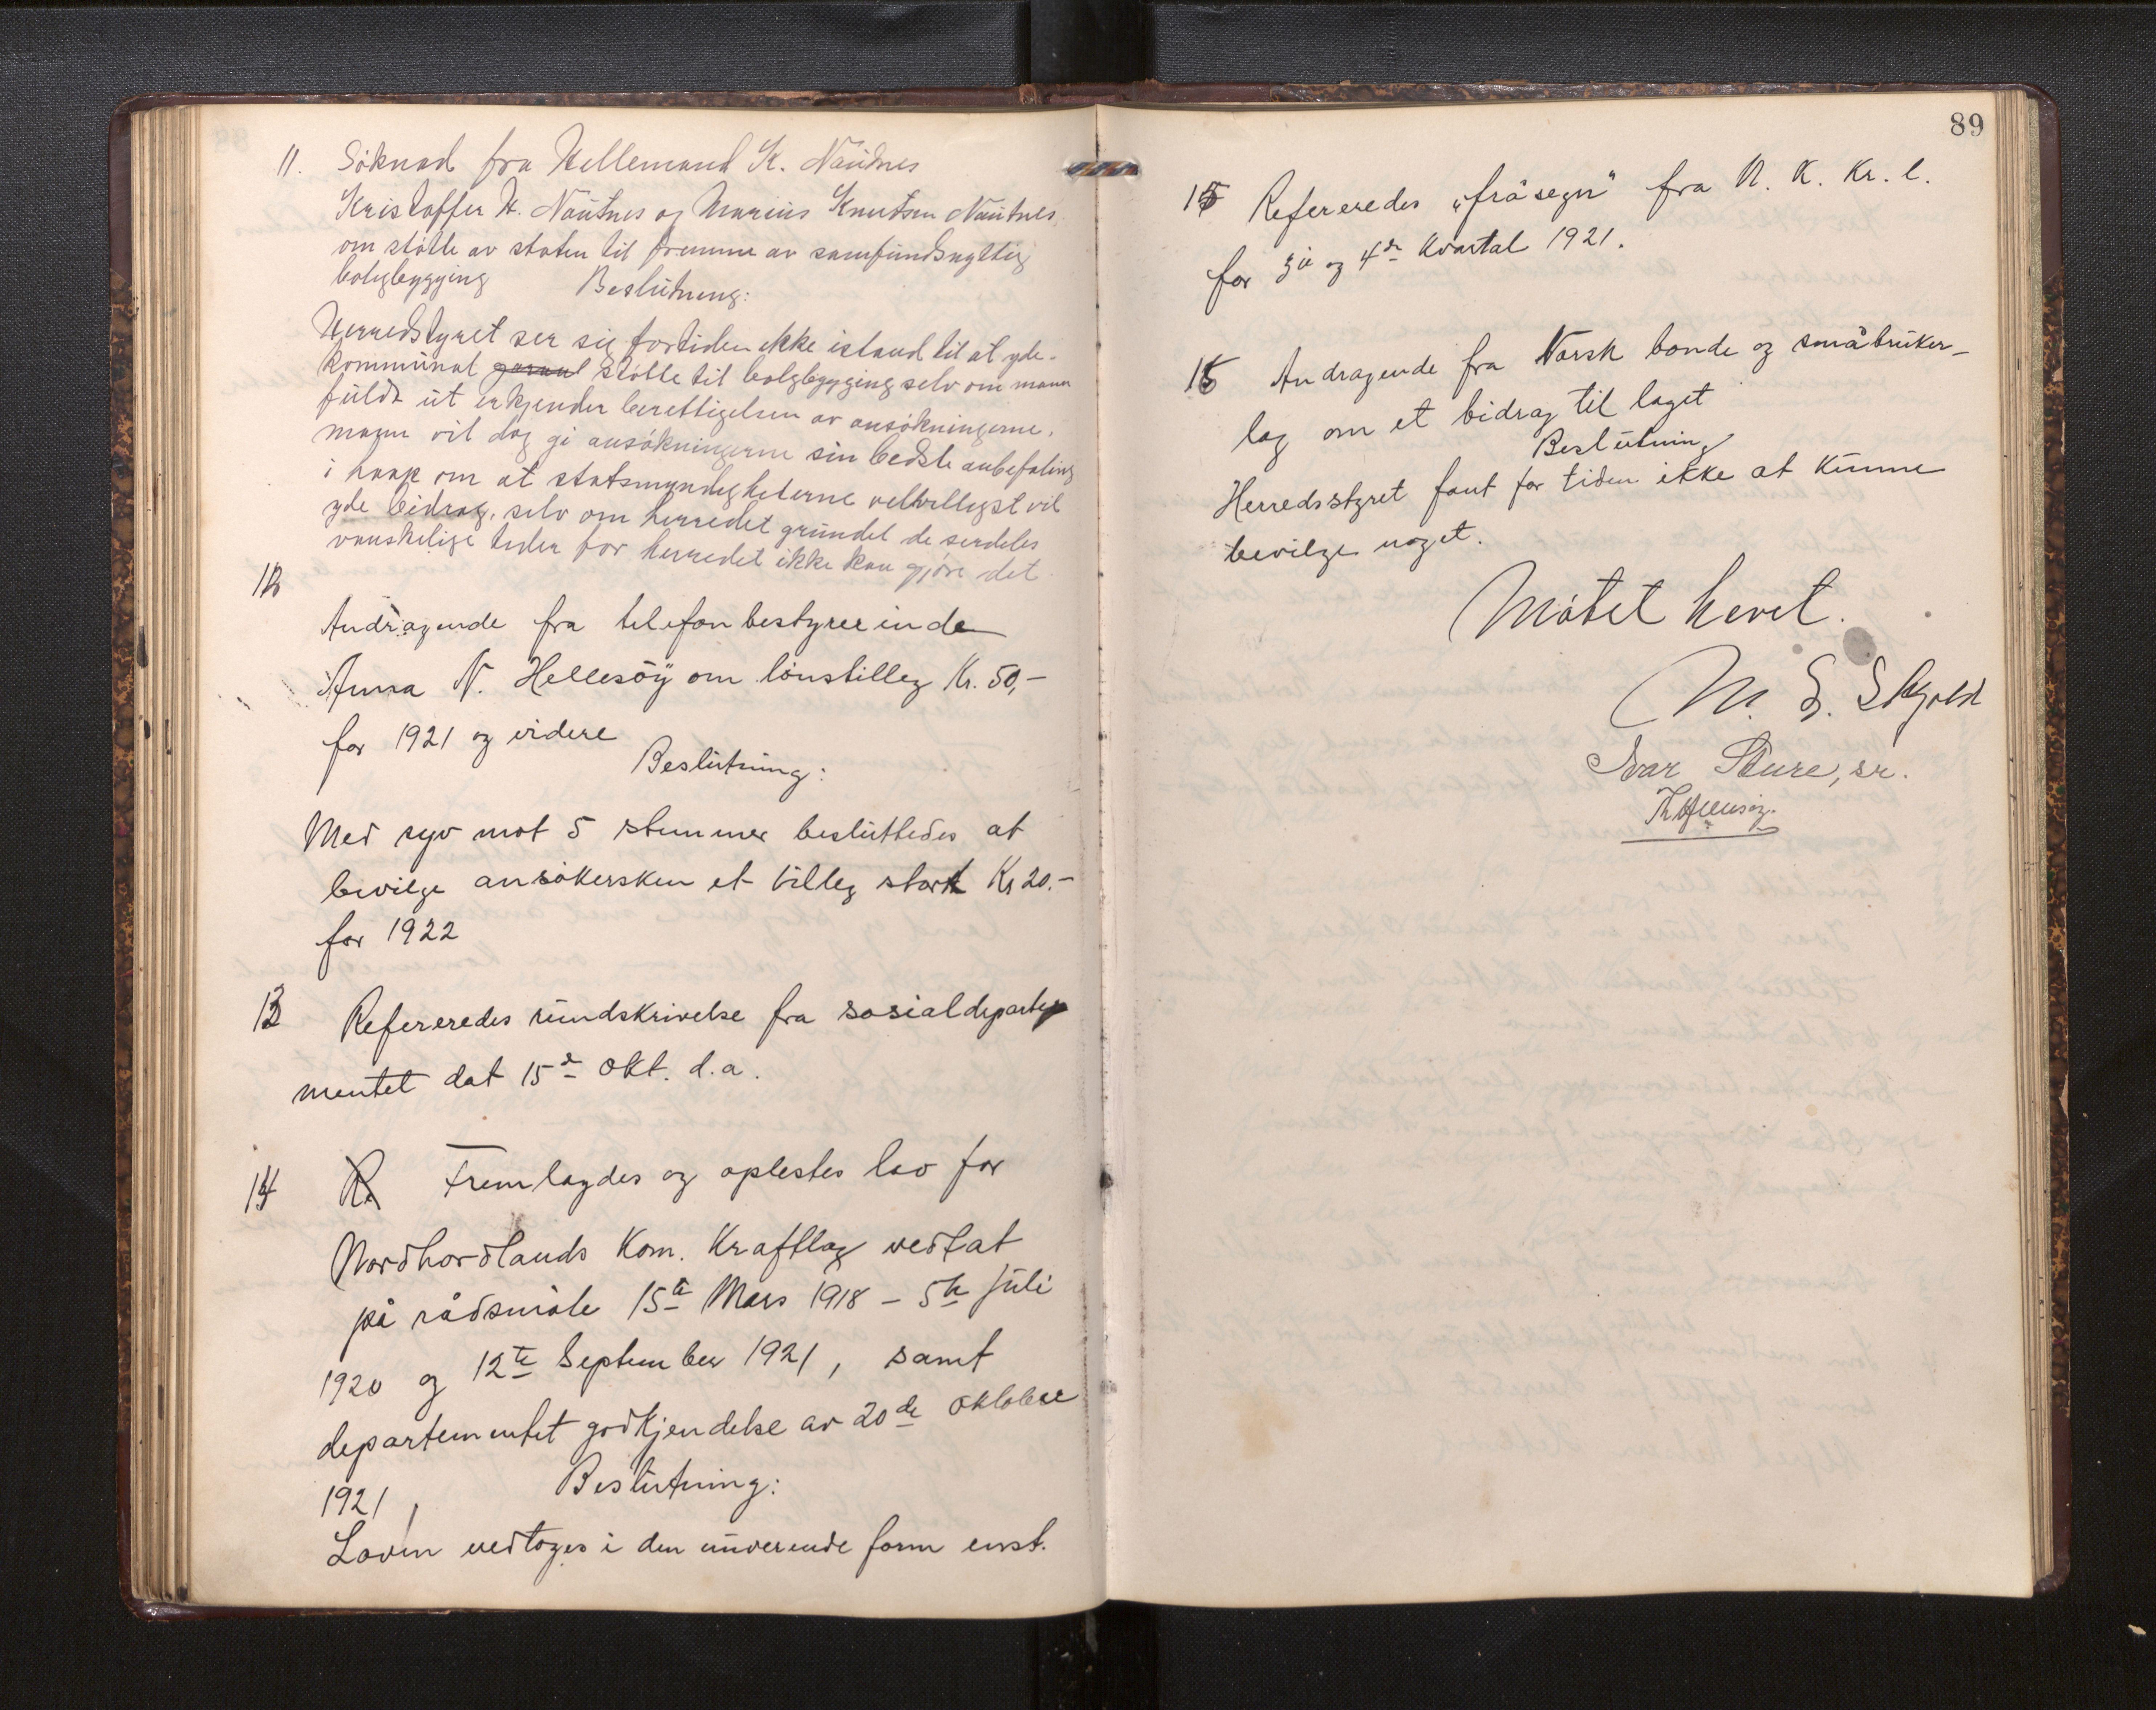 11. Söknad fra Hellemand K. Nautnes
Kristoffer H. Nautnes og Marius Knutsen Nautnes
om støtte av staten til fremme av samfundsnyttig
boligbygging Beslutning:
Herredstyret ser sig fortiden ikke istand til at yde
kommunal garant støtte til boligbygging selv om mann
fuldt ut erkjender berettigelsen av ansøkningerne,
mann vil dog gi ansøkningerne sin bedste anbefaling
i haap om at statsmyndigheterne velvilligst vil
yde bidrag, selv om herredet grundet de serdeles
vanskelige tider for herredet ikke kan gjøre det.
12
Andragende fra telefonbestyrerinde
Anna N. Hellesöy om lönstilleg Kr. 50,-
for 1921 og videre
Beslutning:
Med syv mot 5 stemmer besluttedes at
bevilge ansökersken et tilleg stort Kr 20.-
for 1922
13 Refereredes rundskrivelse fra sosialdeparte
mentet dat 15de Okt. d.a.
14 R. Fremlagdes og oplestes lov for
Nordhordlands Kom. Kraftlag vedtat
på rådsmöte 15te Mars 1918 - 5te juli
1920 og 12te September 1921, samt
departementet godkjendelse av 20de oktober
1921, Beslutning:
Loven vedtoges i den nuverende form enst.
89
15 Refereredes "fråsegn" fra N. K. Kr. l.
for 3je og 4de Kvartal 1921.
16 Andragende fra Norsk bonde og småbruker-
lag om et bidrag til laget
Beslutning
Herredsstyret fant for tiden ikke at kunne
bevilge noget.
Mötet hevet.
M. S. Skjold
Ivar Sture, sr.